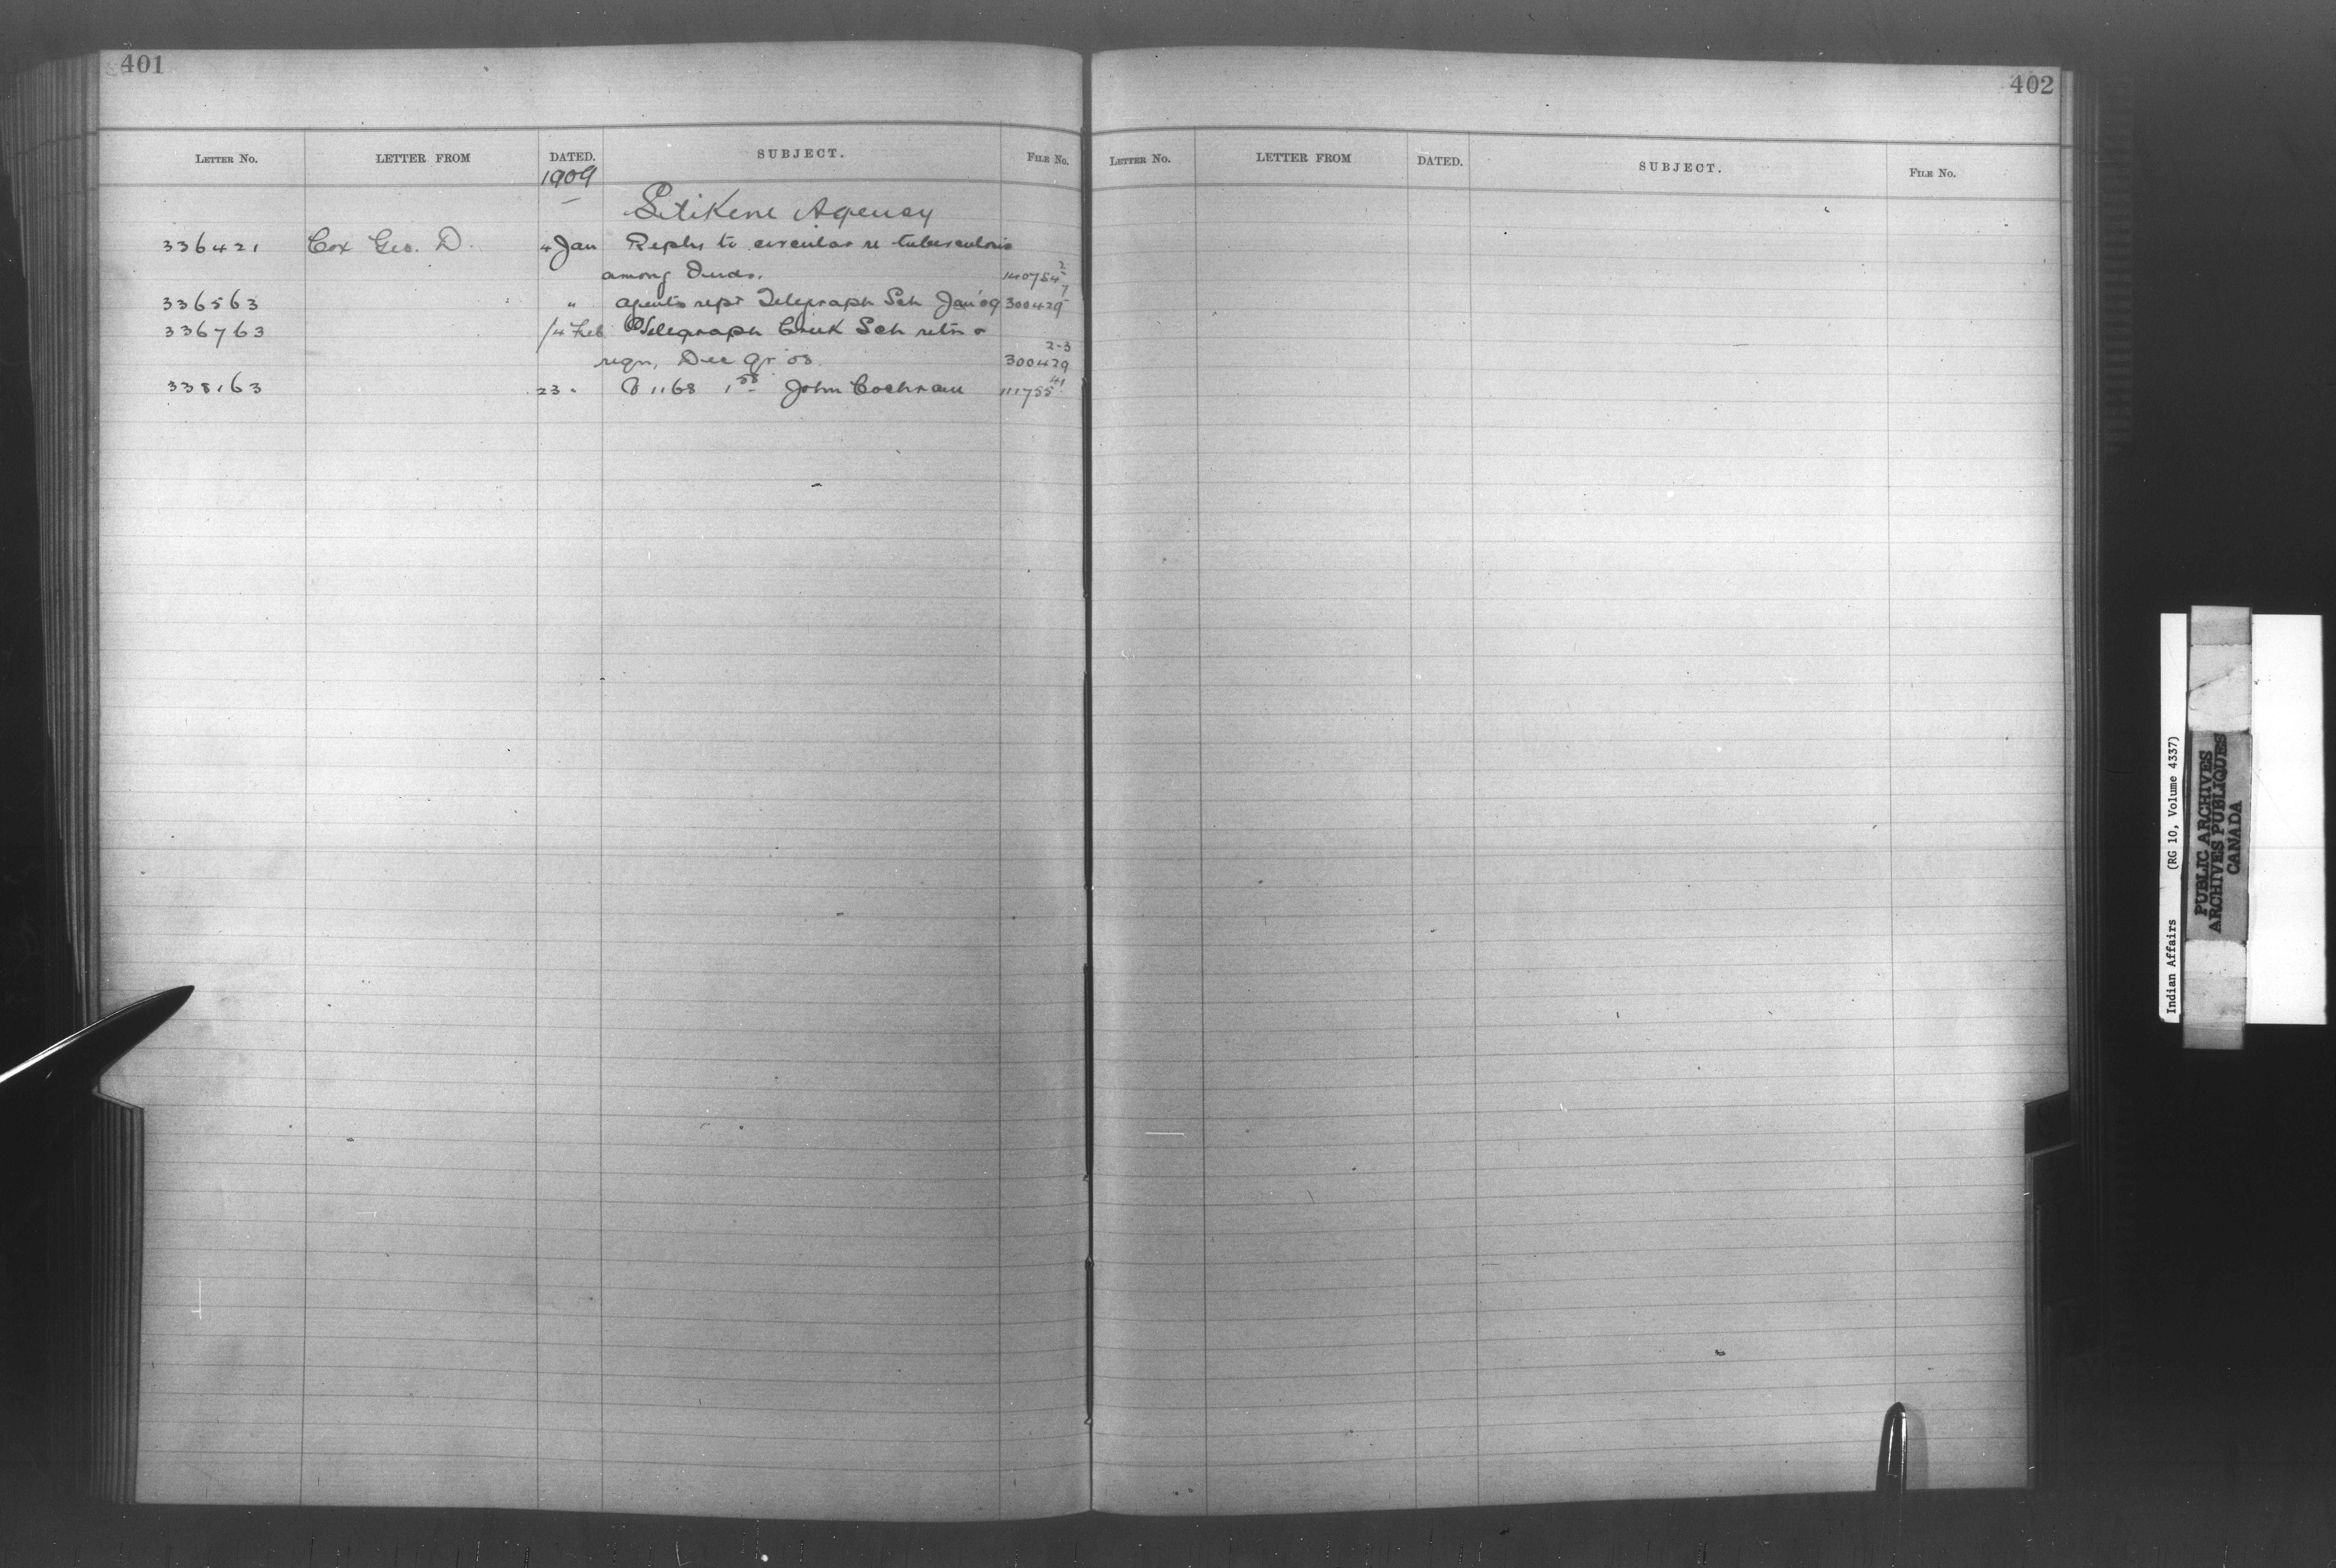 401
LETTER NO. LETTER FROM DATED. SUBJECT. FILE NO.
1909
Stikene Agency
336421 Cox Geo. D. 4 Jan Reply to circular re tuberculosis
among Inds. 140754-2
336563 " Agents rept Telegraph Sch Jan '09 300429-7
336763 14 Feb Telegraph Creek Sch retn &
reqn, Dec qr '08 300429 2-3
338163 23 " 1168 John Cochran 111755 41
402
LETTER NO. LETTER FROM DATED. SUBJECT. FILE NO.
Indian Affairs (RG 10, Volume 4337)
PUBLIC ARCHIVES
ARCHIVES PUBLIQUES
CANADA